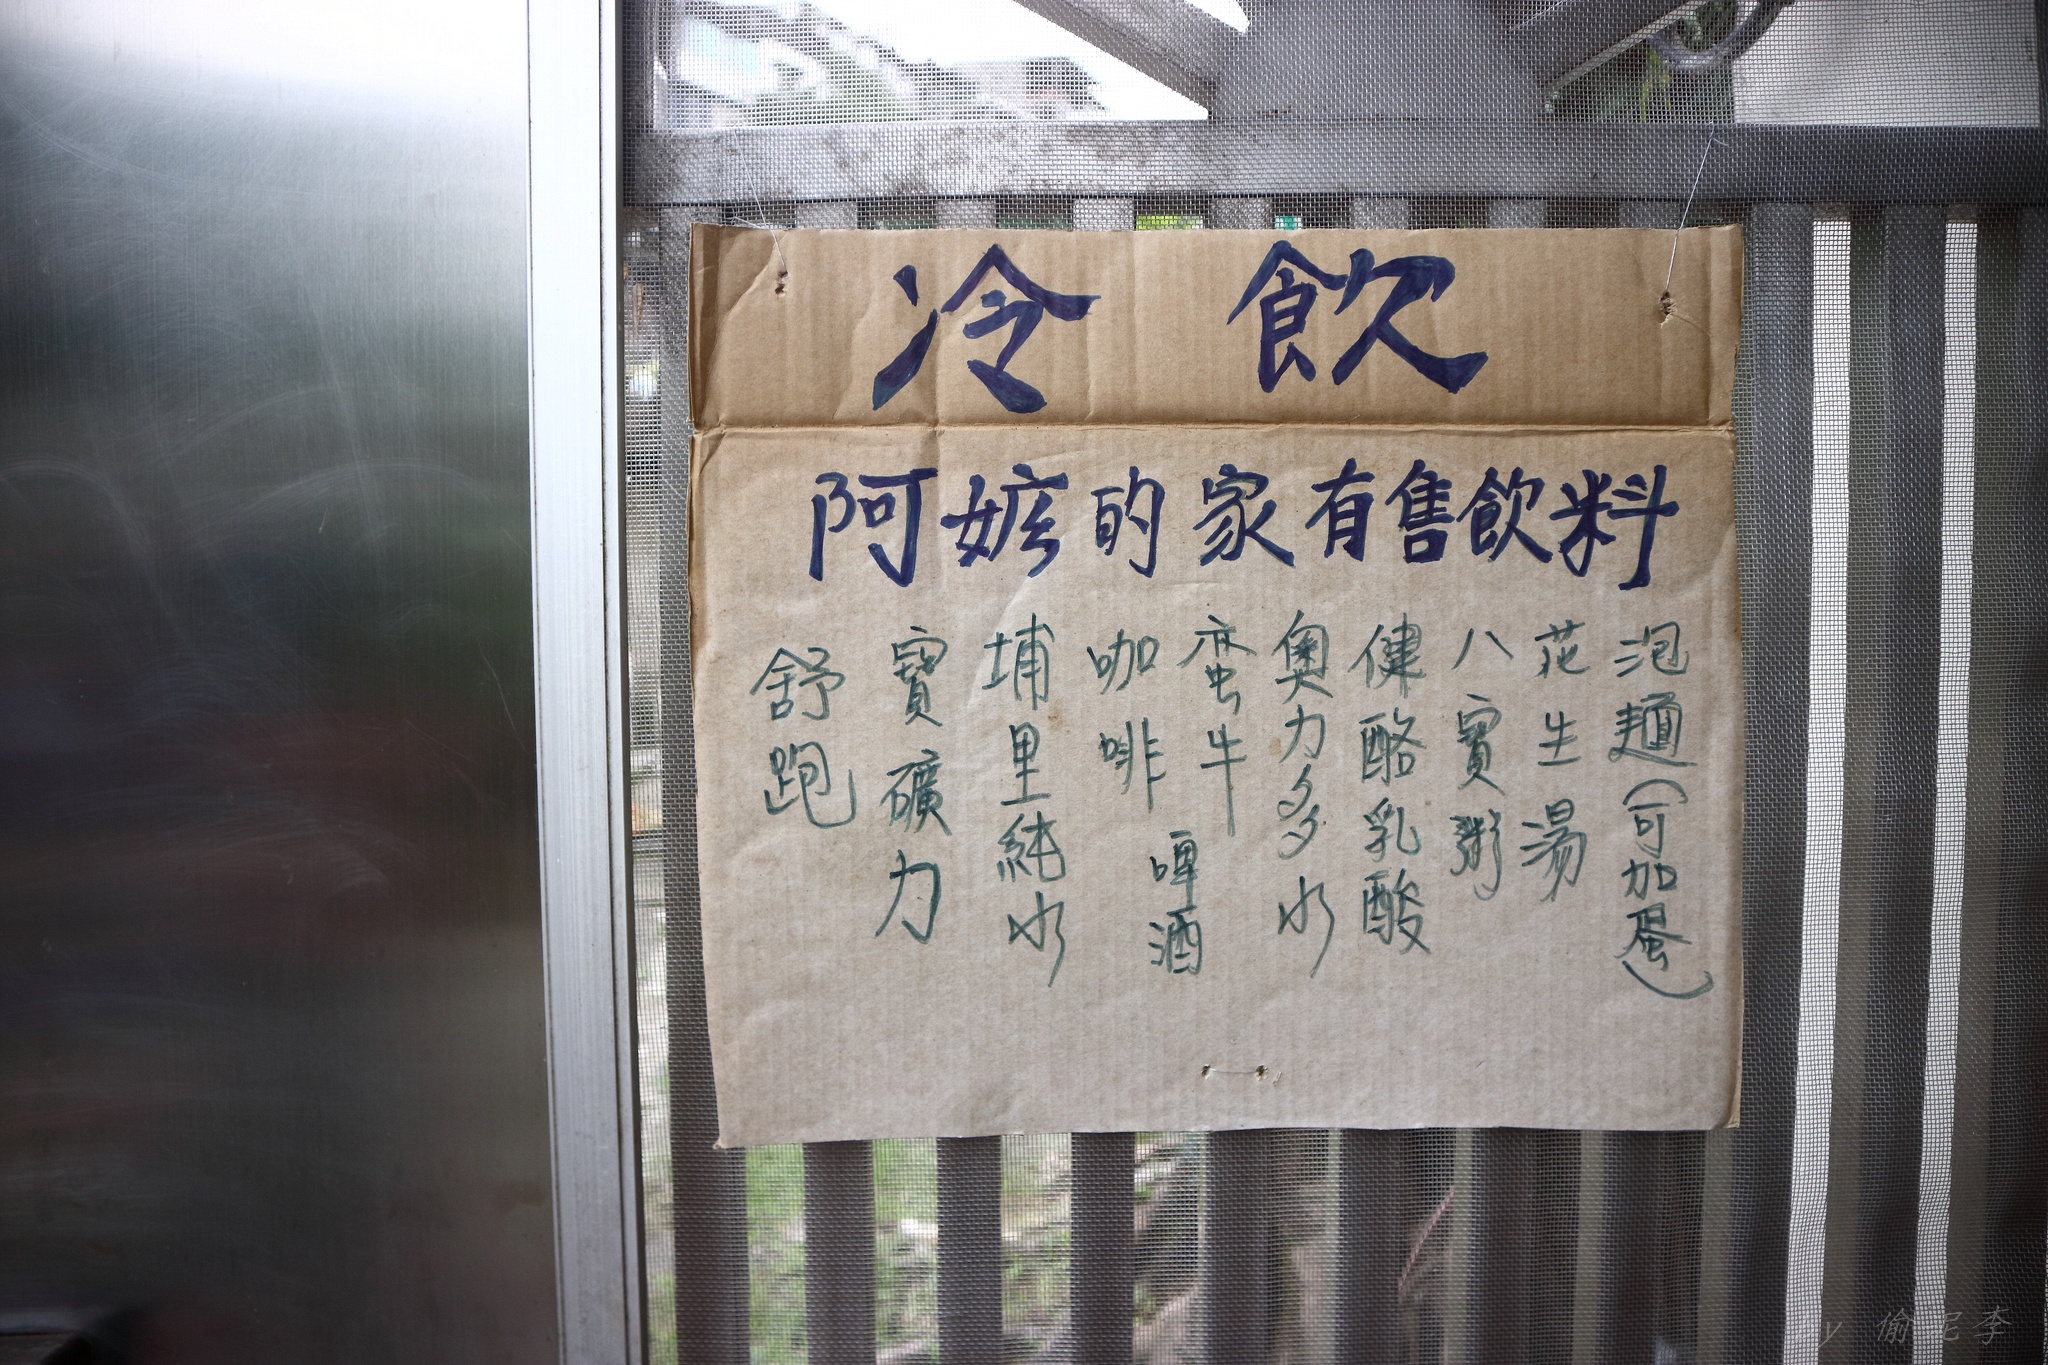 冷飲
阿嬤的家有售飲料
泡麵(可加蛋)
花生湯
八寶粥
健酪乳酸
奧力多水
蛮牛
啤酒
咖啡
埔里純水
寶礦力
舒跑
y 偷尼李